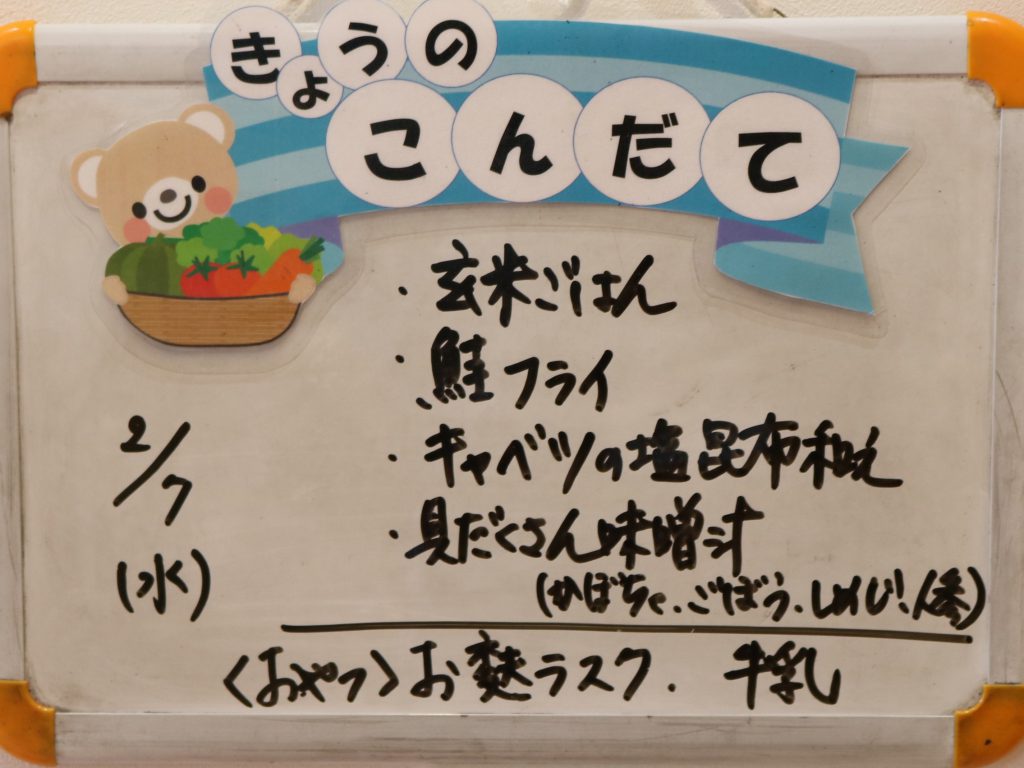 きょうの
こんだて
・玄米ごはん
・鮭フライ
2/7
・キャベツの塩昆布和え
・具だくさん味噌汁
(水)
(かぼちゃ、ごぼう、しめじ、人参)
<おやつ>お麩ラスク、牛乳